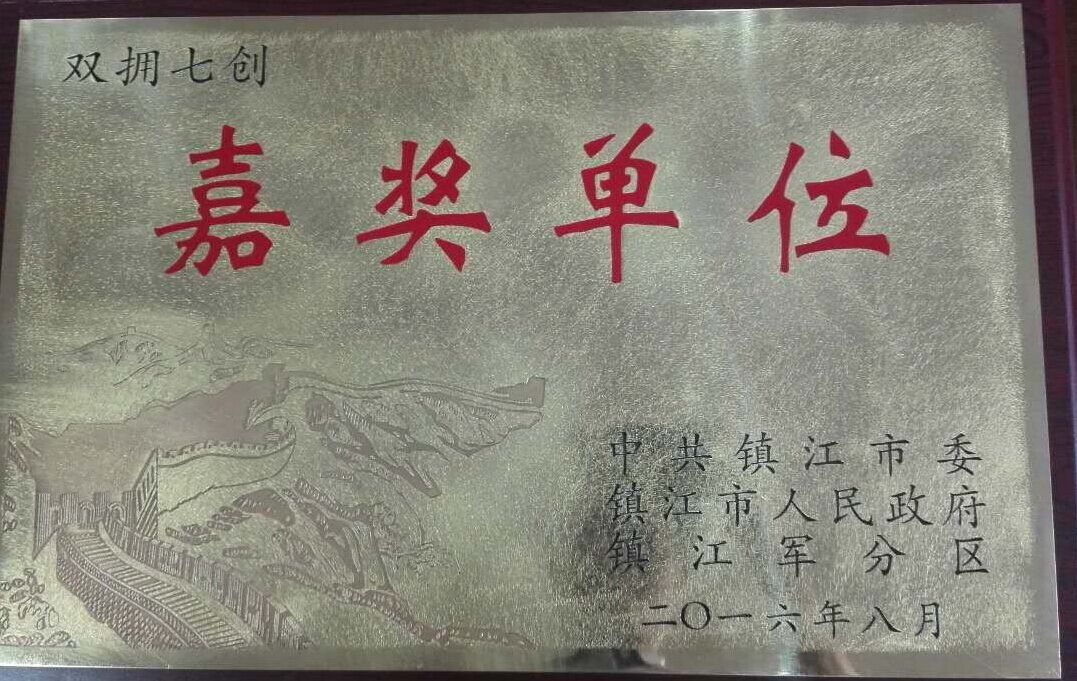 双拥七创
嘉奖单位
中共镇江市委
镇江市人民政府
镇江军分区
二〇一六年八月